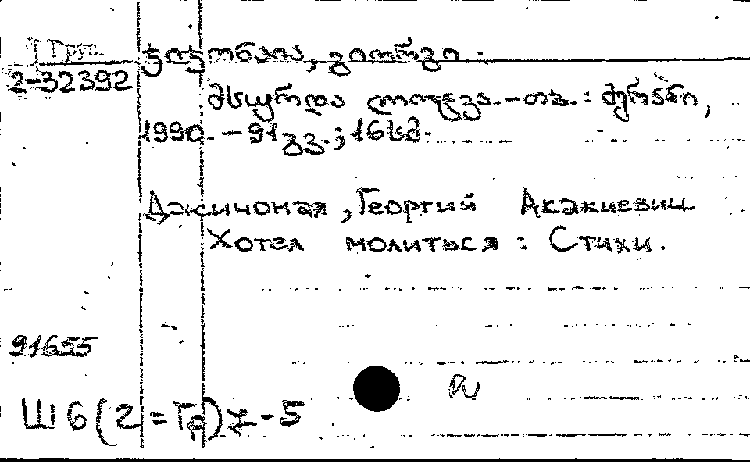 1 Груз.
2-32392
ჯიჭონაია, გიორგი.
მსურდა ლოცვა. - თბ.: მერანი,
1990. - 91 გვ.; 16 სმ.
Джичоная, Георгий Акакиевич
Хотел молиться: Стихи.
91655
Ш6(2=Гр)7-5